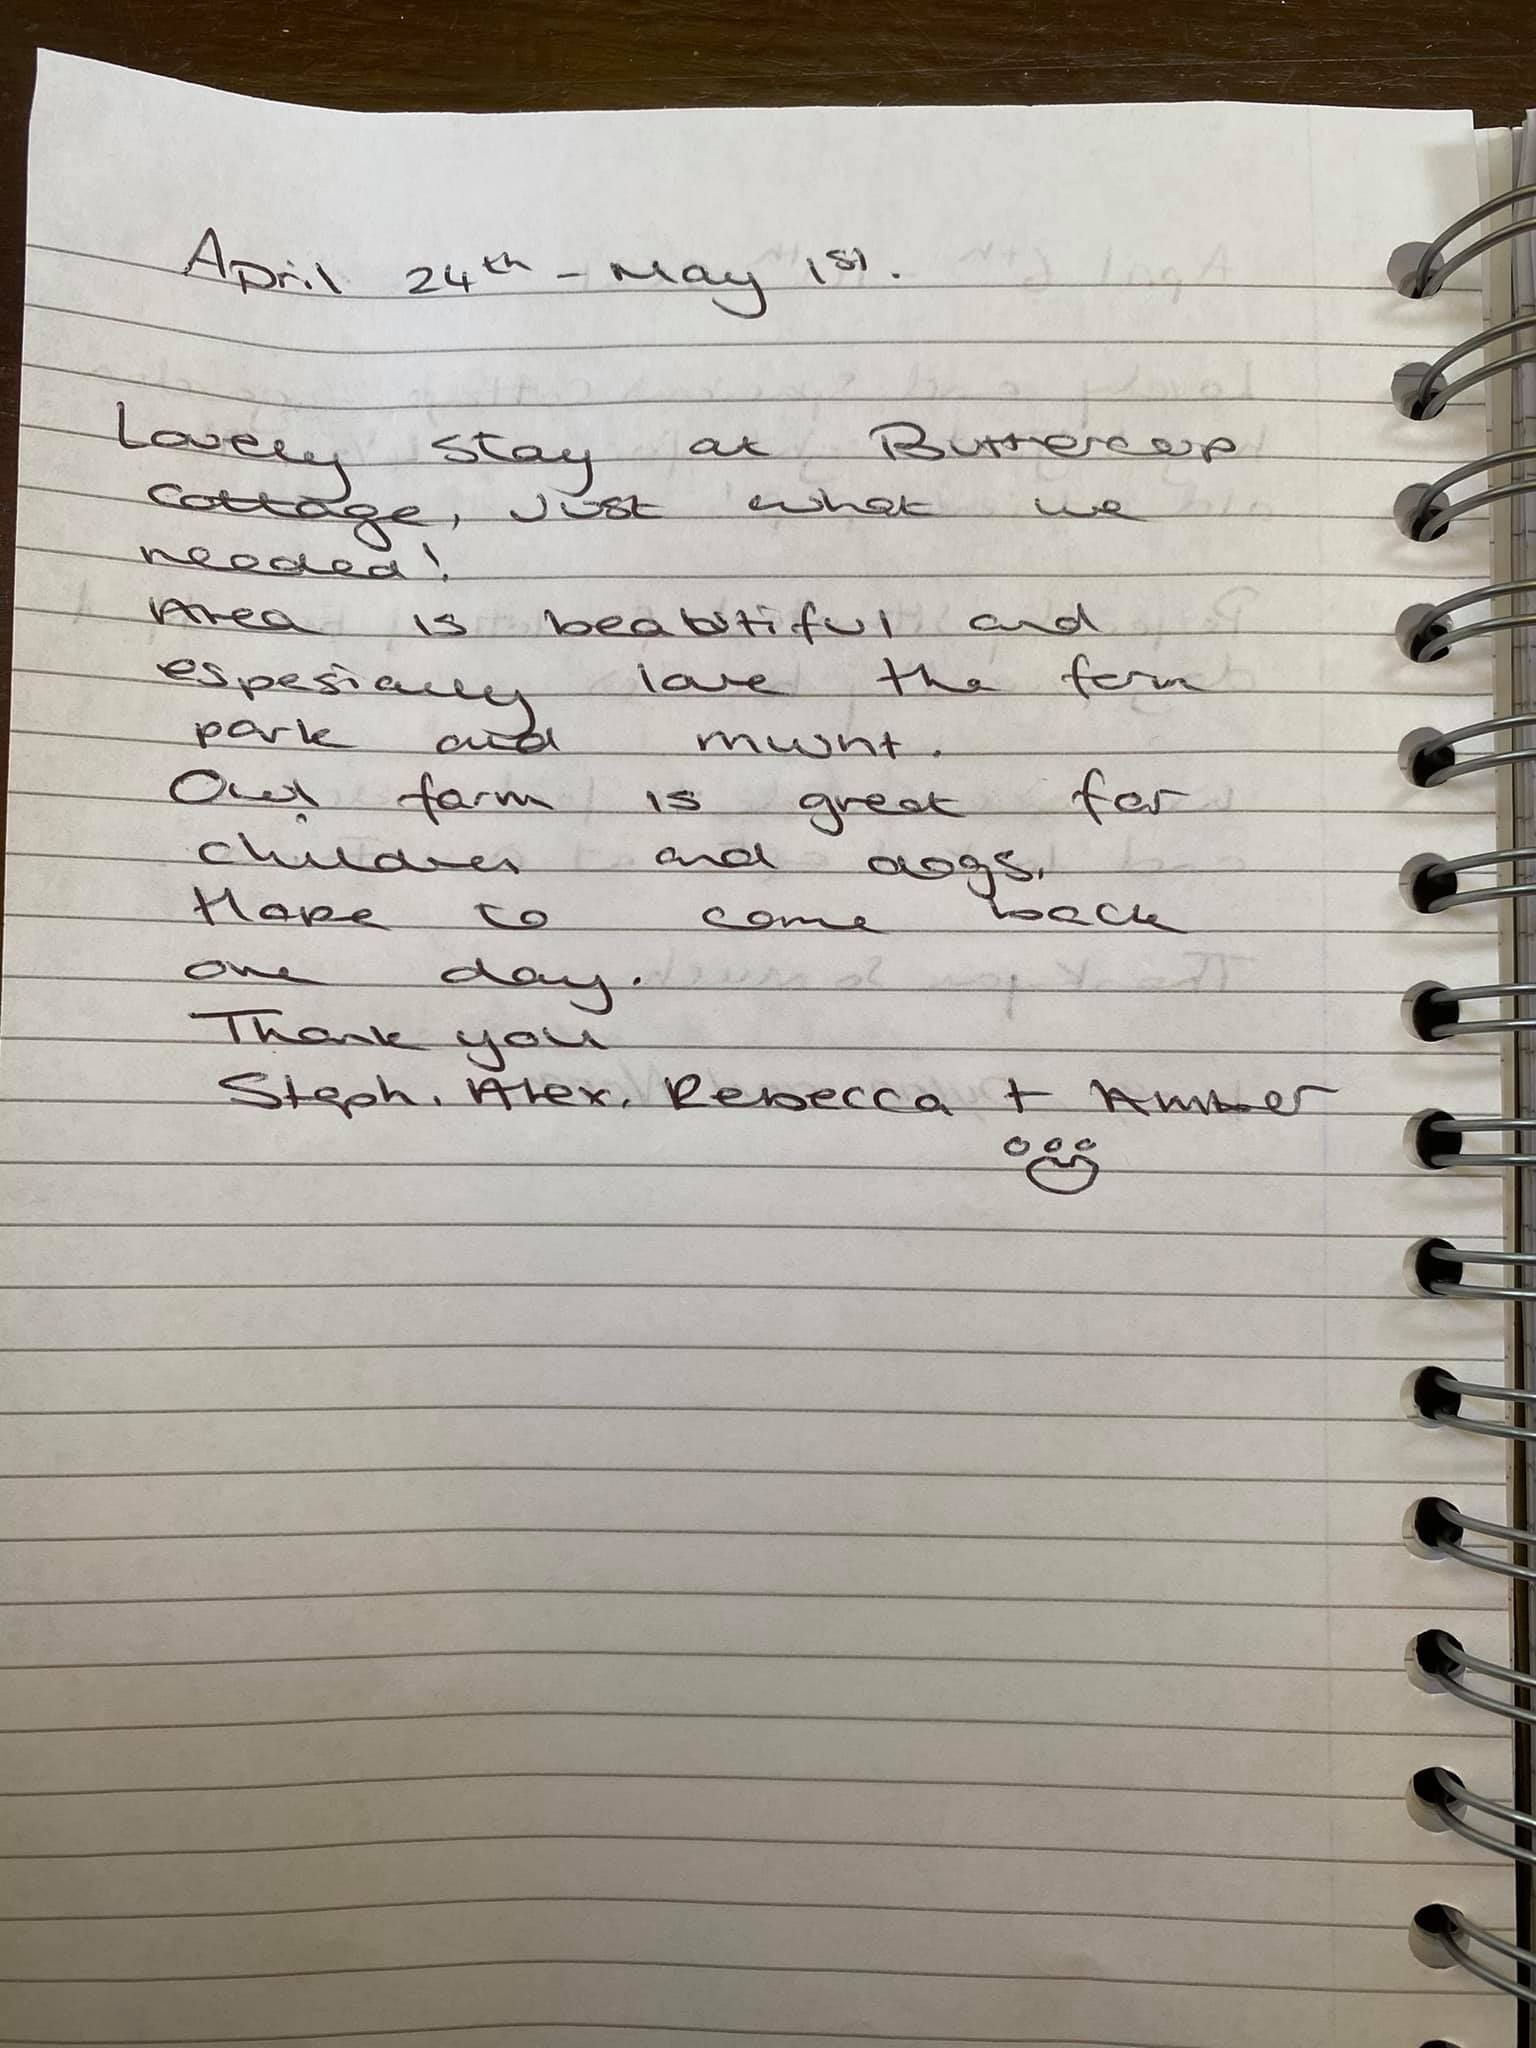 April 24th - May 1st.
Lovely stay at Buttercup
cottage, Just what we
needed!
Area is beabitiful and
espesially love the farm
park and mwnt.
Owl farm is great for
children and dogs.
Hope to come back
one day.
Thank you
Steph, Alex, Rebecca + Amber